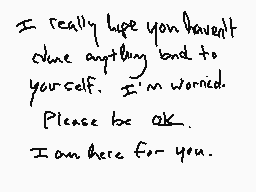 I really hope you haven't
done anything bad to
yourself. I'm worried.
Please be ok.
I am here for you.